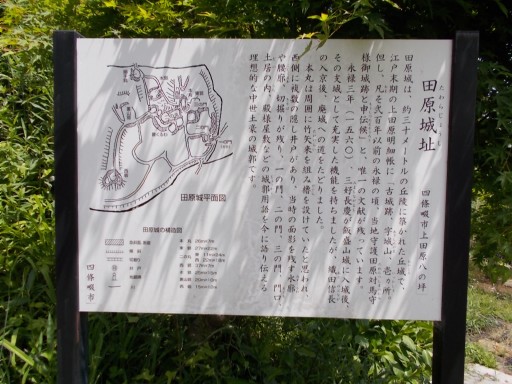 たわらじょうし
田原城址
四條畷市上田原八の坪
田原城は、約三十メートルの丘陵に築かれた丘城で、
江戸末期の上田原明細帳に「古城跡、字城山、壱か所、
但し、凡そ弐百年以前の永禄の頃、当地守護田原対馬守
様御城跡と申伝候」と、唯一の文献が残っています。
永禄三年（一五六〇）、三好長慶が飯盛山城に入城後、
その支城として充実した機能を持ちましたが、織田信長
の入京後、廃城への道をたどりました。
本丸は周囲に竹矢来を組み櫓を設けていたと思われ、
西側に複数の隠し井戸があり、当時の面影を残す水廓
や腰廓、切堀りが残り、一の門、二の門、三の門、門口、
土居の内、殿様屋敷などの城郭用語を今に語り伝える
理想的な中世土豪の城郭です。
四條畷市
田原城平面図
田原城の構造図